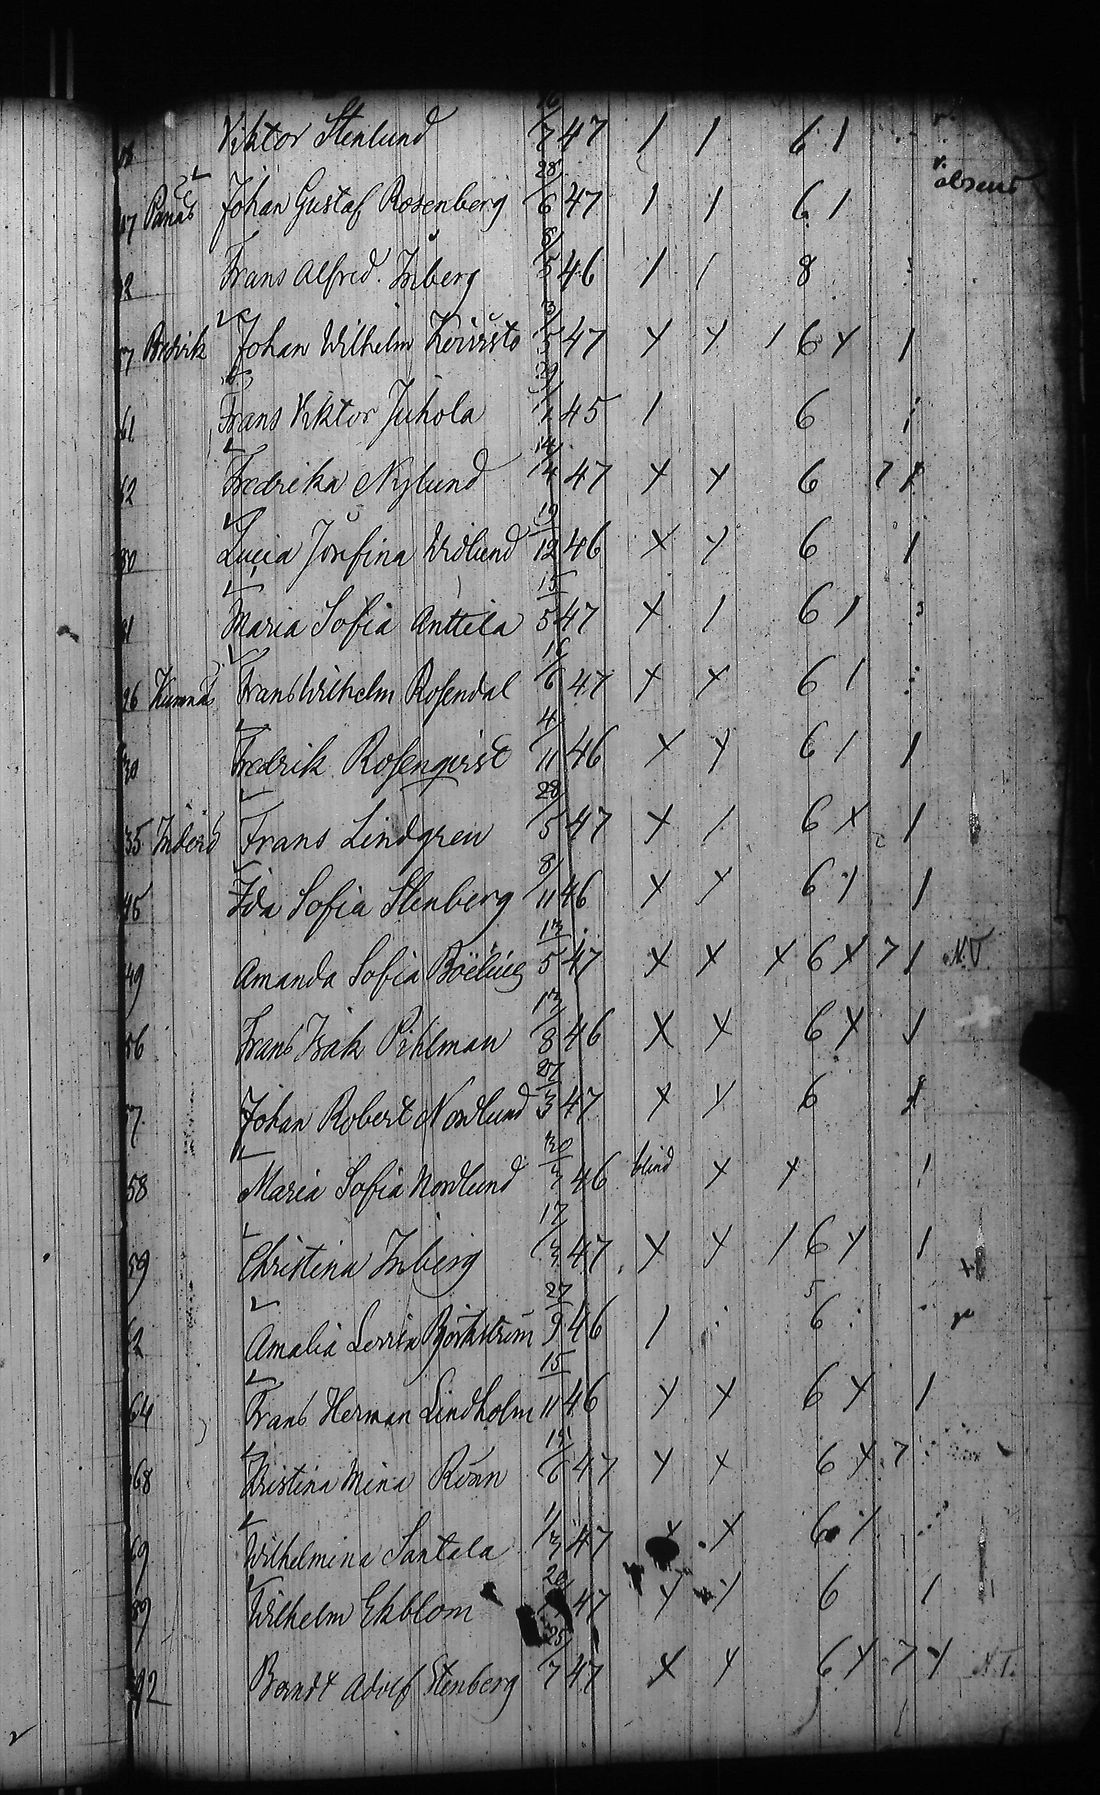 Viktor Stenlund 16/7 47 1 1 6 1 v.
Panäs Johan Gustaf Rosenberg 28/6 47 1 1 6 1 v. absens
Frans Alfred Inberg 8/5 46 1 1 8
Johan Wilhelm 3/5 47 x x 1 6 x 1
61 Frans Viktor Juhola 45 1 6
62 Fredrika Nylund 14/4 47 x x 6 7
Lucia Josefina Widlund 19/12 46 x x 6 1
Maria Sofia Anttila 15/5 47 x 1 6 1
96 Kumnäs Frans Wilhelm Rosendal 16/6 47 x x 6 1
30 Fredrik Rosenqvist 4/11 46 x x 6 1 1
35 Frans Lindgren 28/5 47 x 1 6 x 1
45 Ida Sofia Stenberg 8/11 46 x x 6 x 1
49 Amanda Sofia 13/5 47 x x x 6 x 7 1 N.T.
56 Frans Isak Pihlman 13/8 46 x x 6 x 1
Johan Robert Nordlund 27/3 47 x x 6
58 Maria Sofia Nordlund 46 blind x x 1
59 Christina Inberg 17/3 47 x x 1 6 x 1
Amalia 27/9 46 1 5 6
64 Frans Herman Lindholm 15/11 46 x x 6 x 1
68 Kristina Mina 47 x x 6 x 7
69 Wilhelmina Santala 47 x x 6 x
89 Wilhelm Ekblom 20 47 x x 6 1
92 Berndt Adolf Stenberg 25/7 47 x x 6 x 7 x N.T.